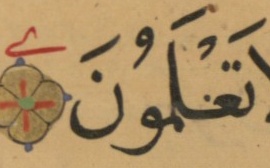 لَا تَعْلَمُونَ